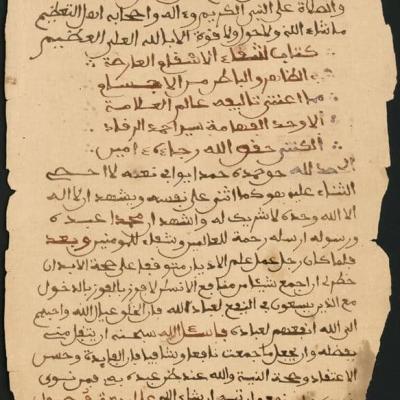 والصلاة على النبي الكريم وءاله واصحابه اهل التعظيم
ما شاء الله ولا حول ولا قوة الا بالله العلي العظيم
كتاب شفاء الاسقام العارضة
الظاهر والباطن من الاجسام
مما اعتنى بتاليفه عالم العلامة
الاوحد الفهامة سيد احمد الرقاد
الكنتي حقق الله رجاءه ءامين
الحمد لله حق حمده حمدا يوافي نعمه لا احصي
الثناء عليه هو كما اثنى على نفسه ونشهد ان لا اله
الا الله وحده لا شريك له واشهد ان محمدا عبده
ورسوله ارسله رحمة للعالمين وشفاء للمومنين وبعد
فلما كان رجل علم الاديان متوقفا على صحة الابدان
خطر لي ان اجمع شيئا من منافع الانس لافوز بالفوز بالدخول
مع الذين يسعون في النفع لعباد الله فان الخلق عيال الله واحبهم
الى الله انفعهم لعباده فاسئل الله سبحانه ان يتقبل مني
بفضله وان يجعل ما جمعت نافعا وشافيا فان الفايدة وحسن
الاعتقاد وصحة النية والله عند ظن عبده به فمن نوى